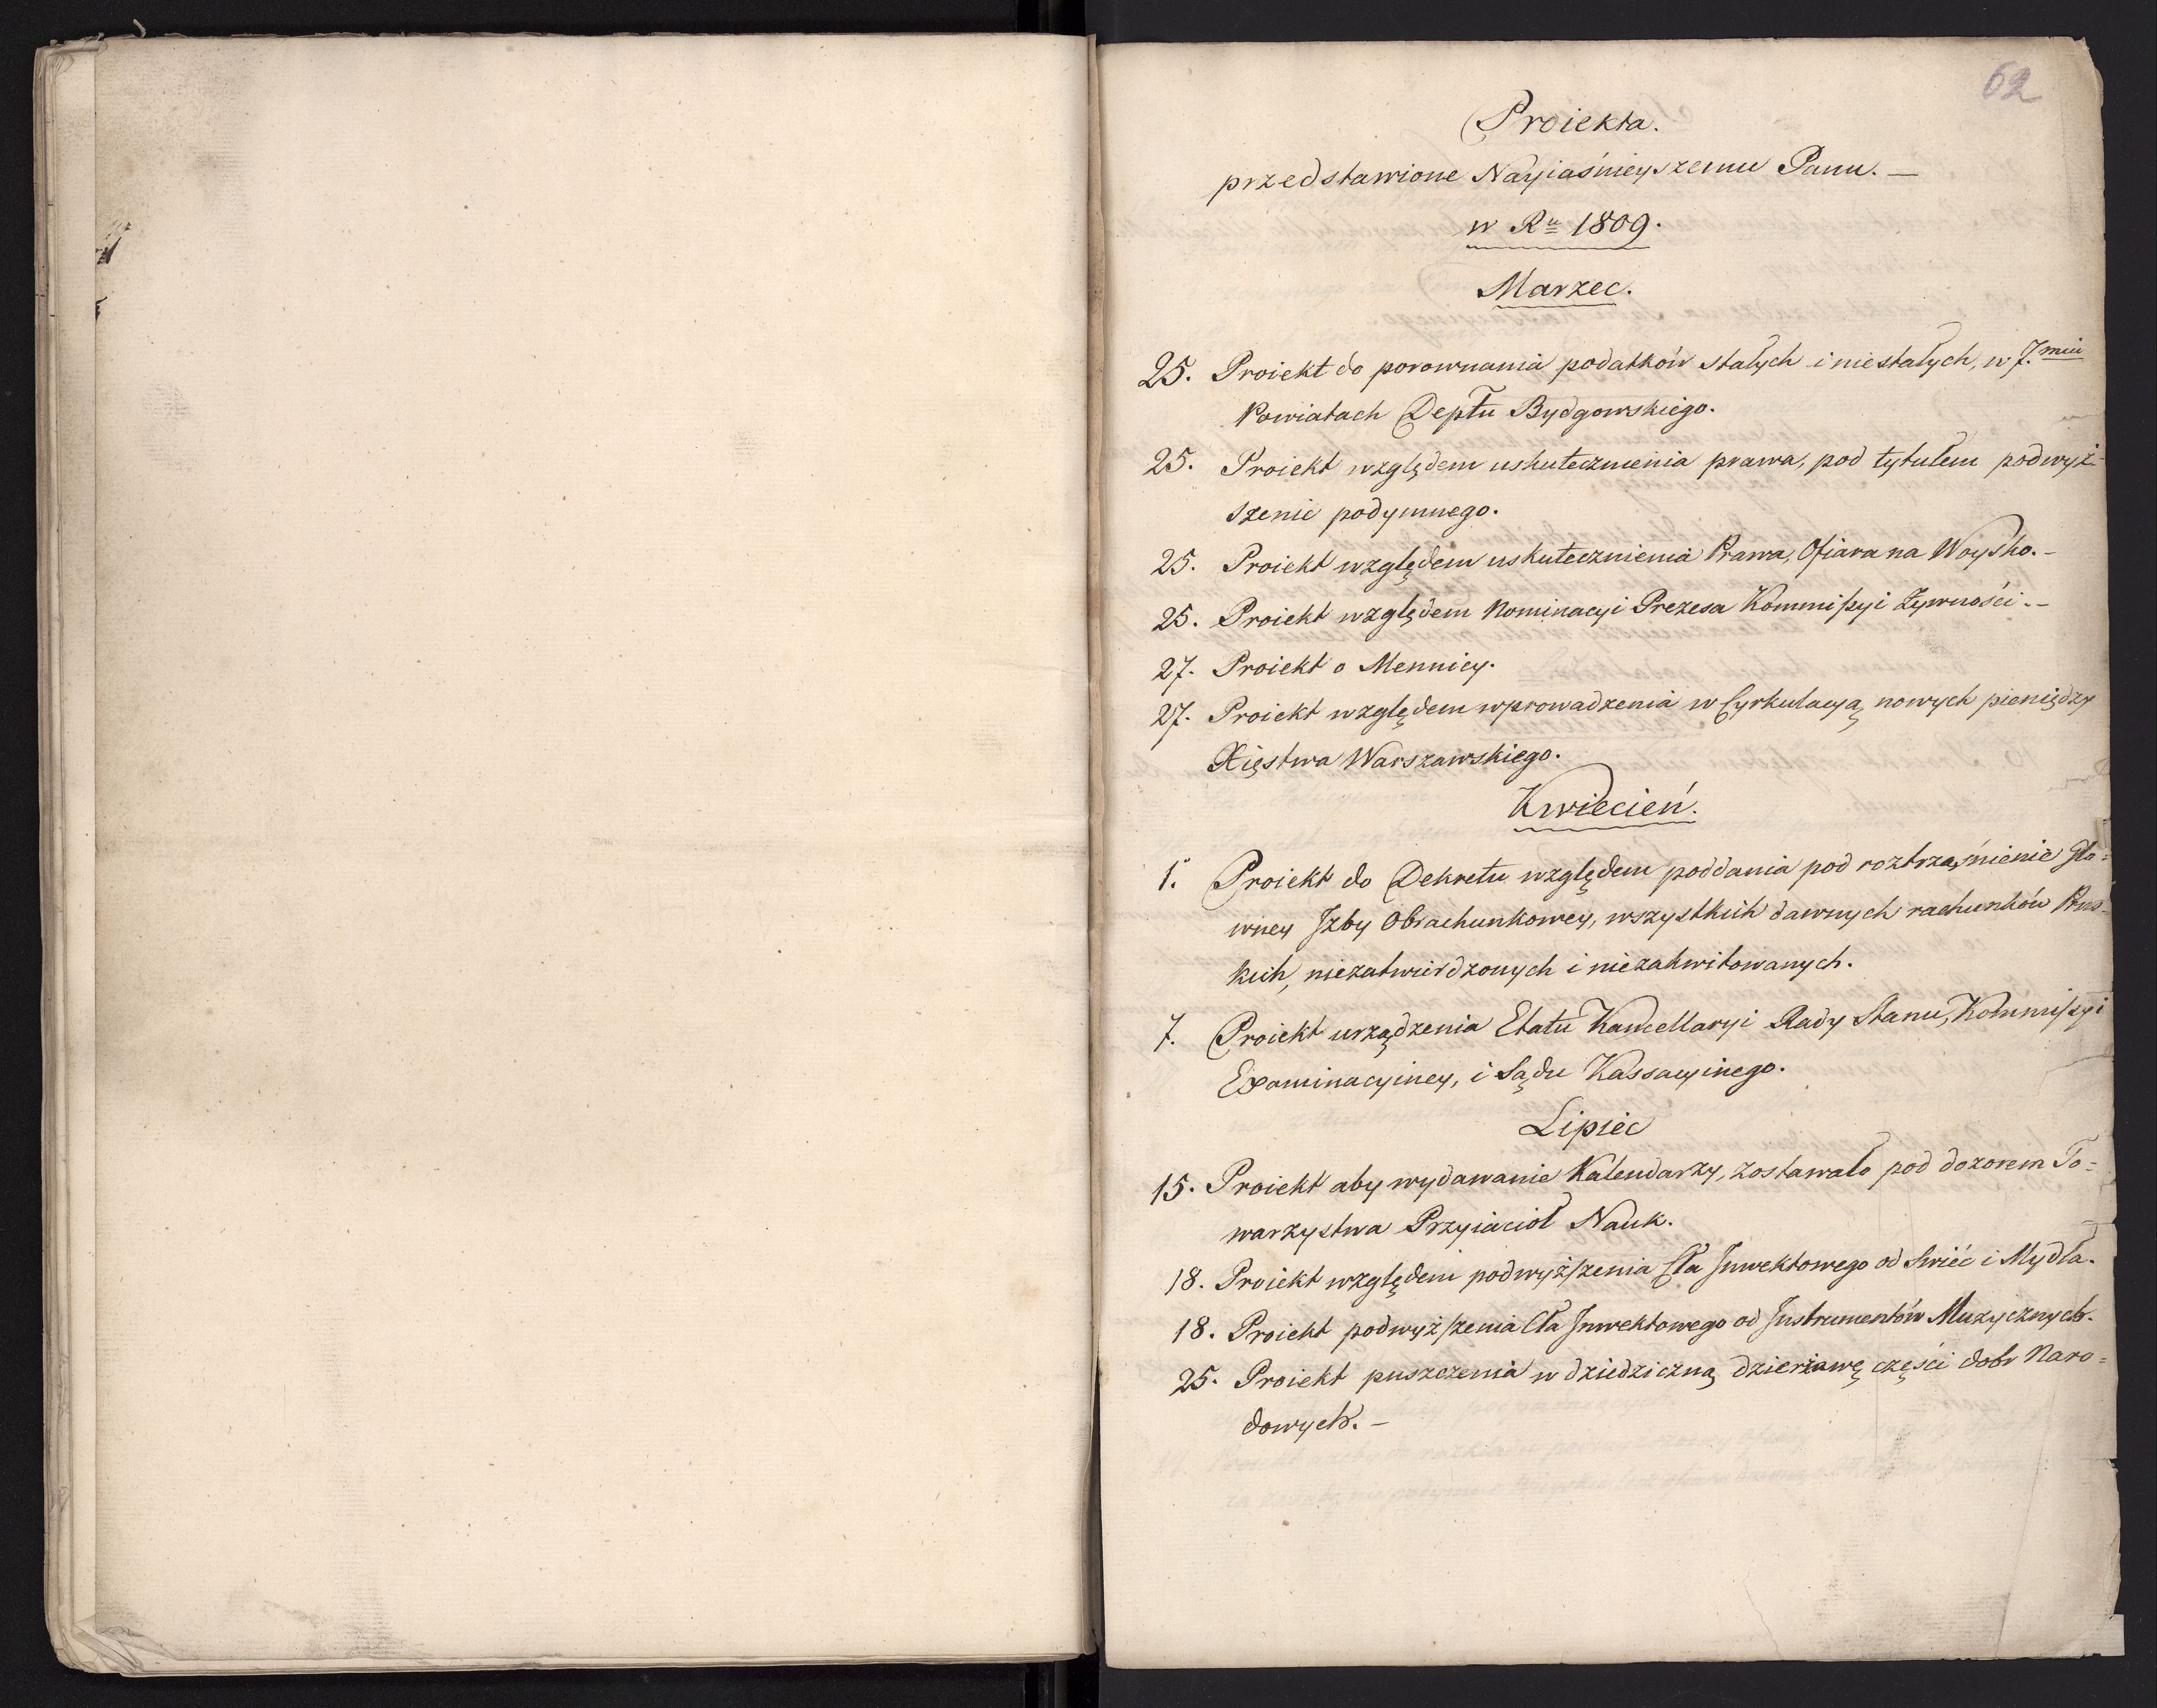 62
Proiekta.
przedstawione Nayiaśnieyszemu Panu. —
w Ru 1809.
Marzec.
25. Proiekt do porownania podatków stałych i niestałych, w 7.miu
Powiatach Deptu Bydgowskiego.
25. Proiekt względem uskutecznienia prawa, pod tytułem podwyż-
szenie podymnego.
25. Proiekt względem uskutecznienia Prawa, Ofiara na Woysko. –
25. Proiekt względem Nominacyi Prezesa Kommißyi Żywności. –
27. Proiekt o Mennicy.
27. Proiekt względem wprowadzenia w Cyrkulacyą nowych pieniędzy
Xięstwa Warszawskiego.
Kwiecień.
1. Proiekt do Dekretu względem poddania pod roztrząśnienie Gło=
wney Izby Obrachunkowey, wszystkich dawnych rachunków Prus-
kich, niezatwierdzonych i niezakwitowanych.
7. Proiekt urządzenia Etatu Kancellaryi Rady Stanu, Kommißyi
Examinacyiney, i Sądu Kassacyinego.
Lipiec
15. Proiekt aby wydawanie Kalendarzy, zostawało pod dozorem To=
warzystwa Przyiaciół Nauk.
18. Proiekt względem podwyżſzenia Cła Inwektowego od Swiéc i Mydła.
18. Proiekt podwyżſzenia Cła Inwektowego od Instrumentów Muzycznych.
25. Proiekt puszczenia w dziedziczną dzierżawę części dobr Naro=
dowych. –